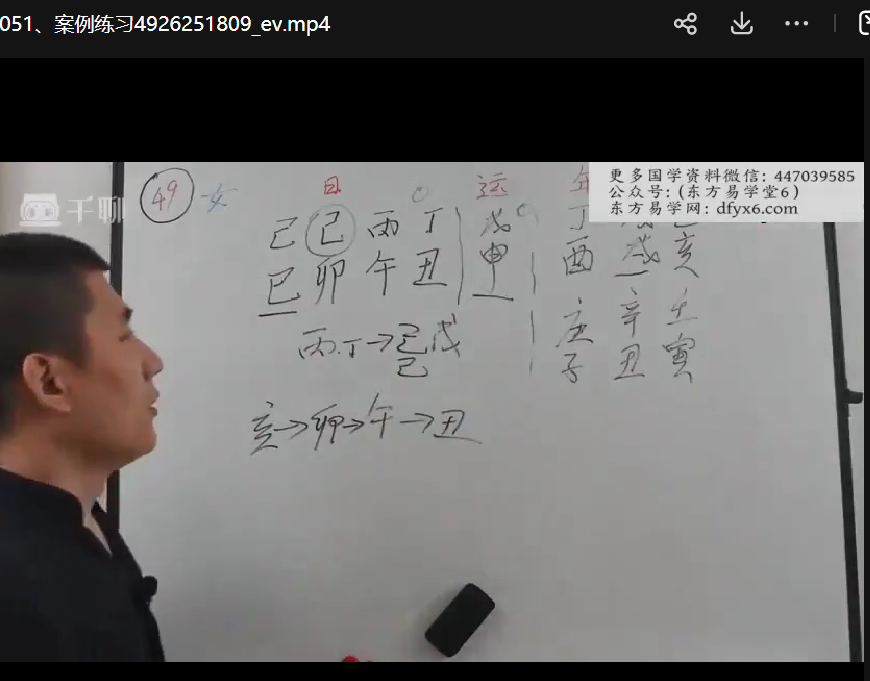 051、案例练习4926251809_ev.mp4
更多国学资料微信: 447039585
公众号: (东方易学堂6)
东方易学网: dfyx6.com
千聊
49 女 日 运 年
己 己 丙 丁 戊 丁
巳 卯 午 丑 申 酉 戌 亥
丙.丁→己戊
己
庚 辛 壬
子 丑 寅
亥→卯→午→丑